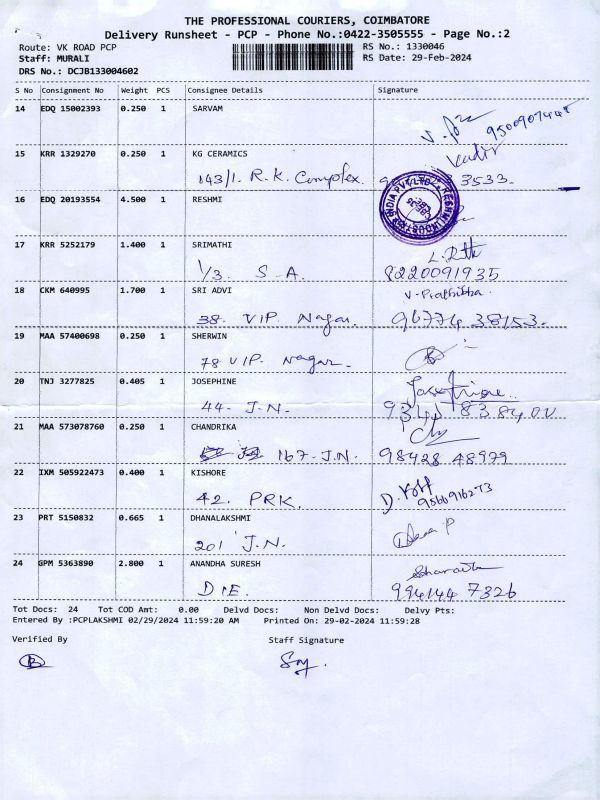 THE PROFESSIONAL COURIERS, COIMBATORE
Delivery Runsheet - PCP - Phone No.:0422-3505555 - Page No.:2
Route: VK ROAD PCP RS No.: 1330046
Staff: MURALI RS Date: 29-Feb-2024
DRS No.: DCJB133004602
S No Consignment No Weight PCS Consignee Details Signature
14 EDQ 15002393 0.250 1 SARVAM
15 KRR 1329270 0.250 1 KG CERAMICS
143/1. R.K. Complex. 3533.
16 EDQ 20193554 4.500 1 RESHMI
17 KRR 5252179 1.400 1 SRIMATHI
1/3. S-A. 8220091935
18 CKM 640995 1.700 1 SRI ADVI V-Prathibha.
38. VIP Nagar. 96774 38153.
19 MAA 57400698 0.250 1 SHERWIN
78 VIP. Nagar.
20 TNJ 3277825 0.405 1 JOSEPHINE Josephine
44. J.N.
21 MAA 573078760 0.250 1 CHANDRIKA
167-J.N. 98428 48979
22 IXM 505922473 0.400 1 KISHORE
42. PRK. 9566916273
23 PRT 5150832 0.665 1 DHANALAKSHMI
201 J.N.
24 GPM 5363890 2.800 1 ANANDHA SURESH
DIE. 994144 7326
Tot Docs: 24 Tot COD Amt: 0.00 Delvd Docs: Non Delvd Docs: Delvy Pts:
Entered By :PCPLAKSHMI 02/29/2024 11:59:20 AM Printed On: 29-02-2024 11:59:28
Verified By Staff Signature